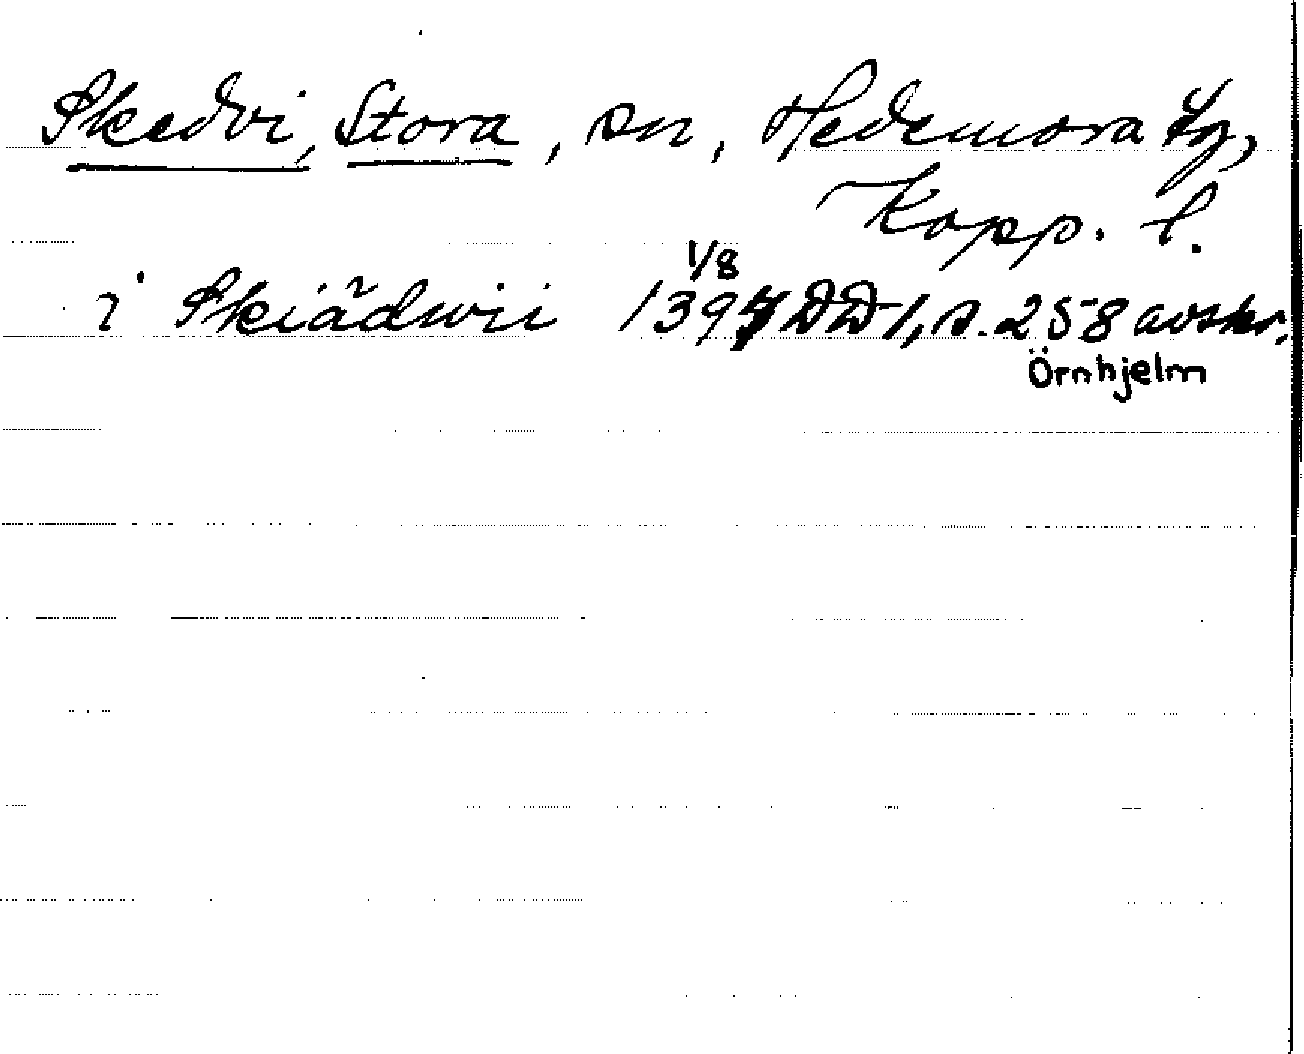 Skedvi, Stora, sn, Hedemora tg,
Kopp. l.
1/8
i Skiädwii 1394 DD 1, s. 258 avskr.
Örnhjelm